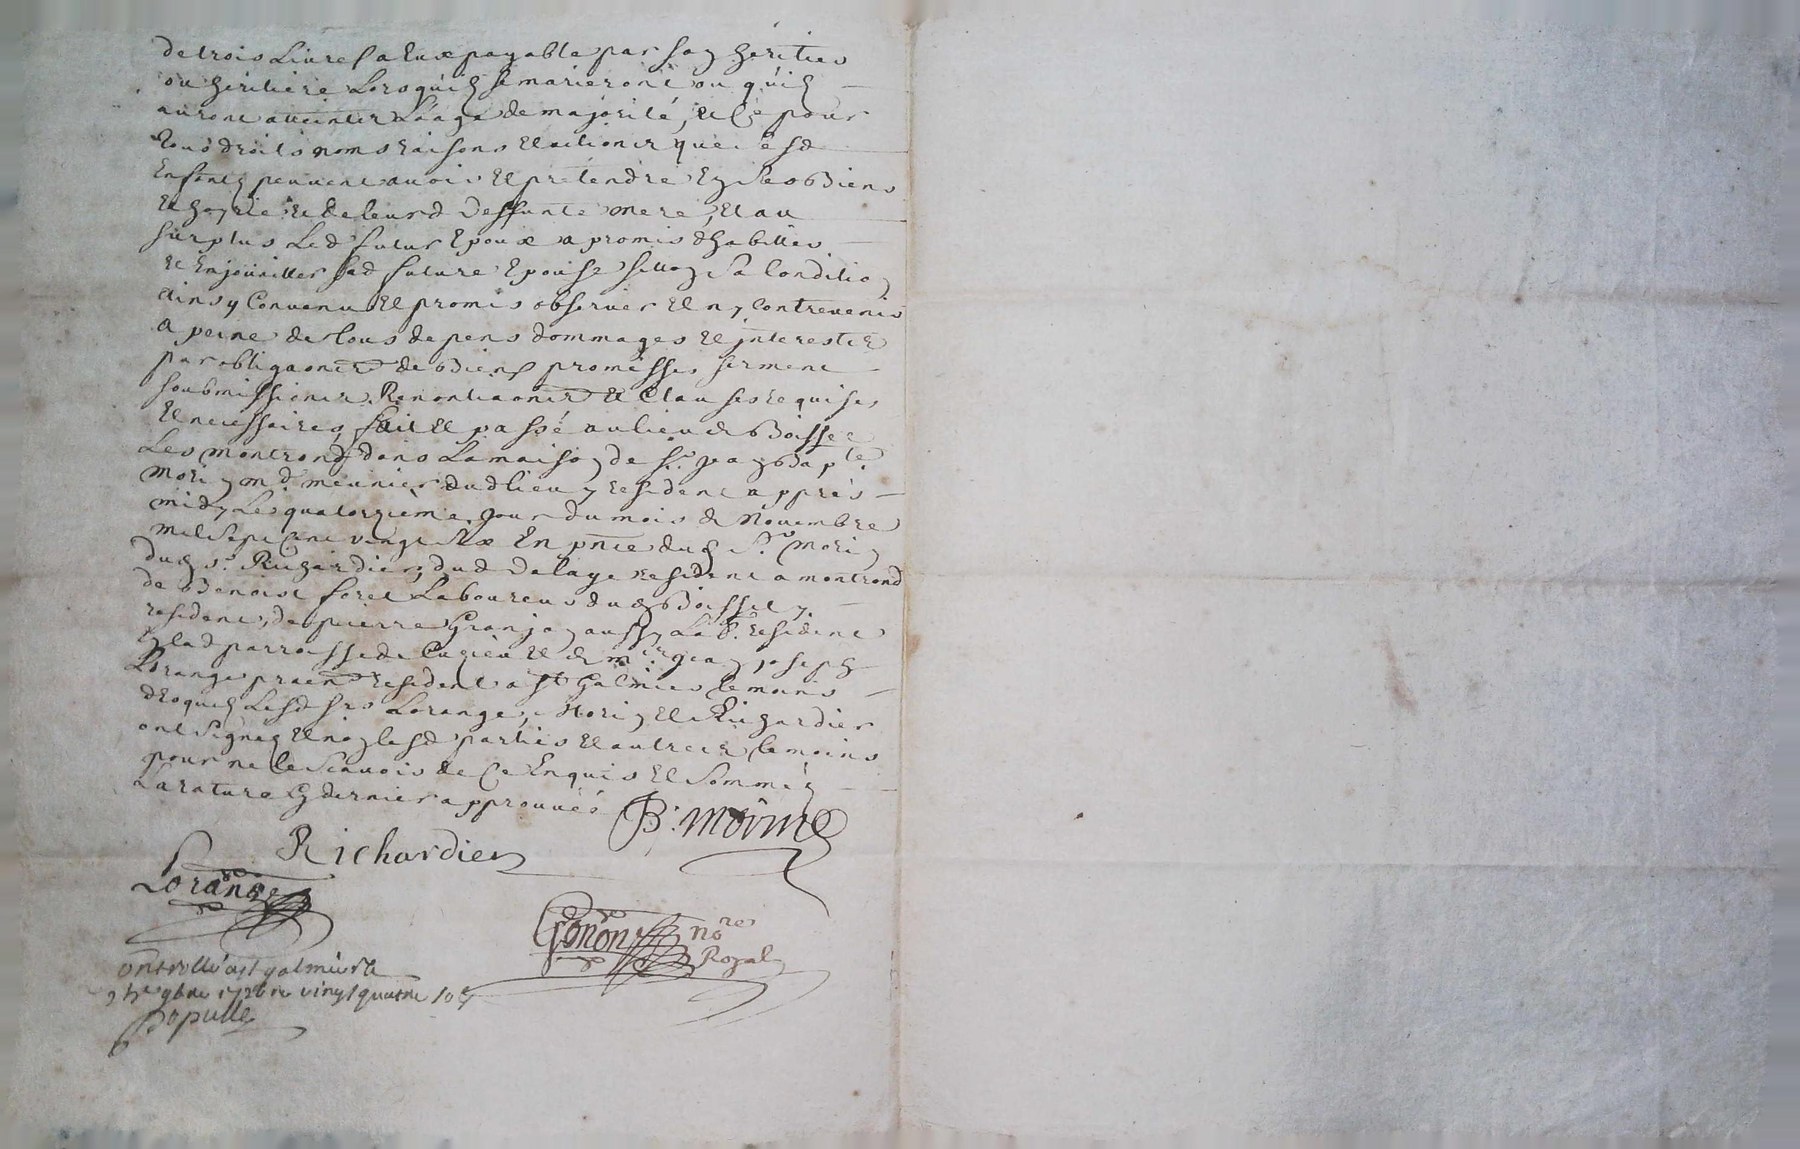 de trois Livres a Eux payable par son heritier
ou heritiere Lorsquils se marieront ou quils
auront atteinter Laage de majorité, et Ce pour
tous droits noms raisons et actions que lesd
Enfants peuvent avoir et prétendre En Les Biens
et hoyrie de leurd deffunte mere, et au
surplus Led futur Epoux a promis dhabiller
et Enjouailler sad future Epouse sellon sa Condition
ainsy Convenu et promis observer et ny Contrevenir
a peine de tous depens dommages et jnterests
par obligaons de Biens promesses serment
soubmissions Renontiaons et Clauses requises
et necessaires, fait et passé au lieu de Boisset
Les montrond dans La maison de Sr. Jean Bapte.
Morin md. meunier dud lieu y resident appres
midy Le quatorzieme Jour du mois de Novembre
mil sept Cent vingt Six En pnce dud Sr. Morin
dud Sr. Richardier, dud Delaye resident a montrond
de Benoist foret Laboureur dud Boisset y
resident, de pierre Granjon aussy Lab. resident
En lad parroisse de Cuzieu et de mre. Jean joseph
Lorange praen resident a St Galmier temoins
desquels Lesd Srs Lorange, Morin et Richardier
ont signés et non lesd parties et autres temoins
pour ne le scavoir de Ce Enquis et Sommés
La rature En dernier approuvés
B. morine
Richardier
Lorange
Gonon nore
Royal
ontrollé a st galmier le
9bre 1726 re vingt quatre sols
Populle